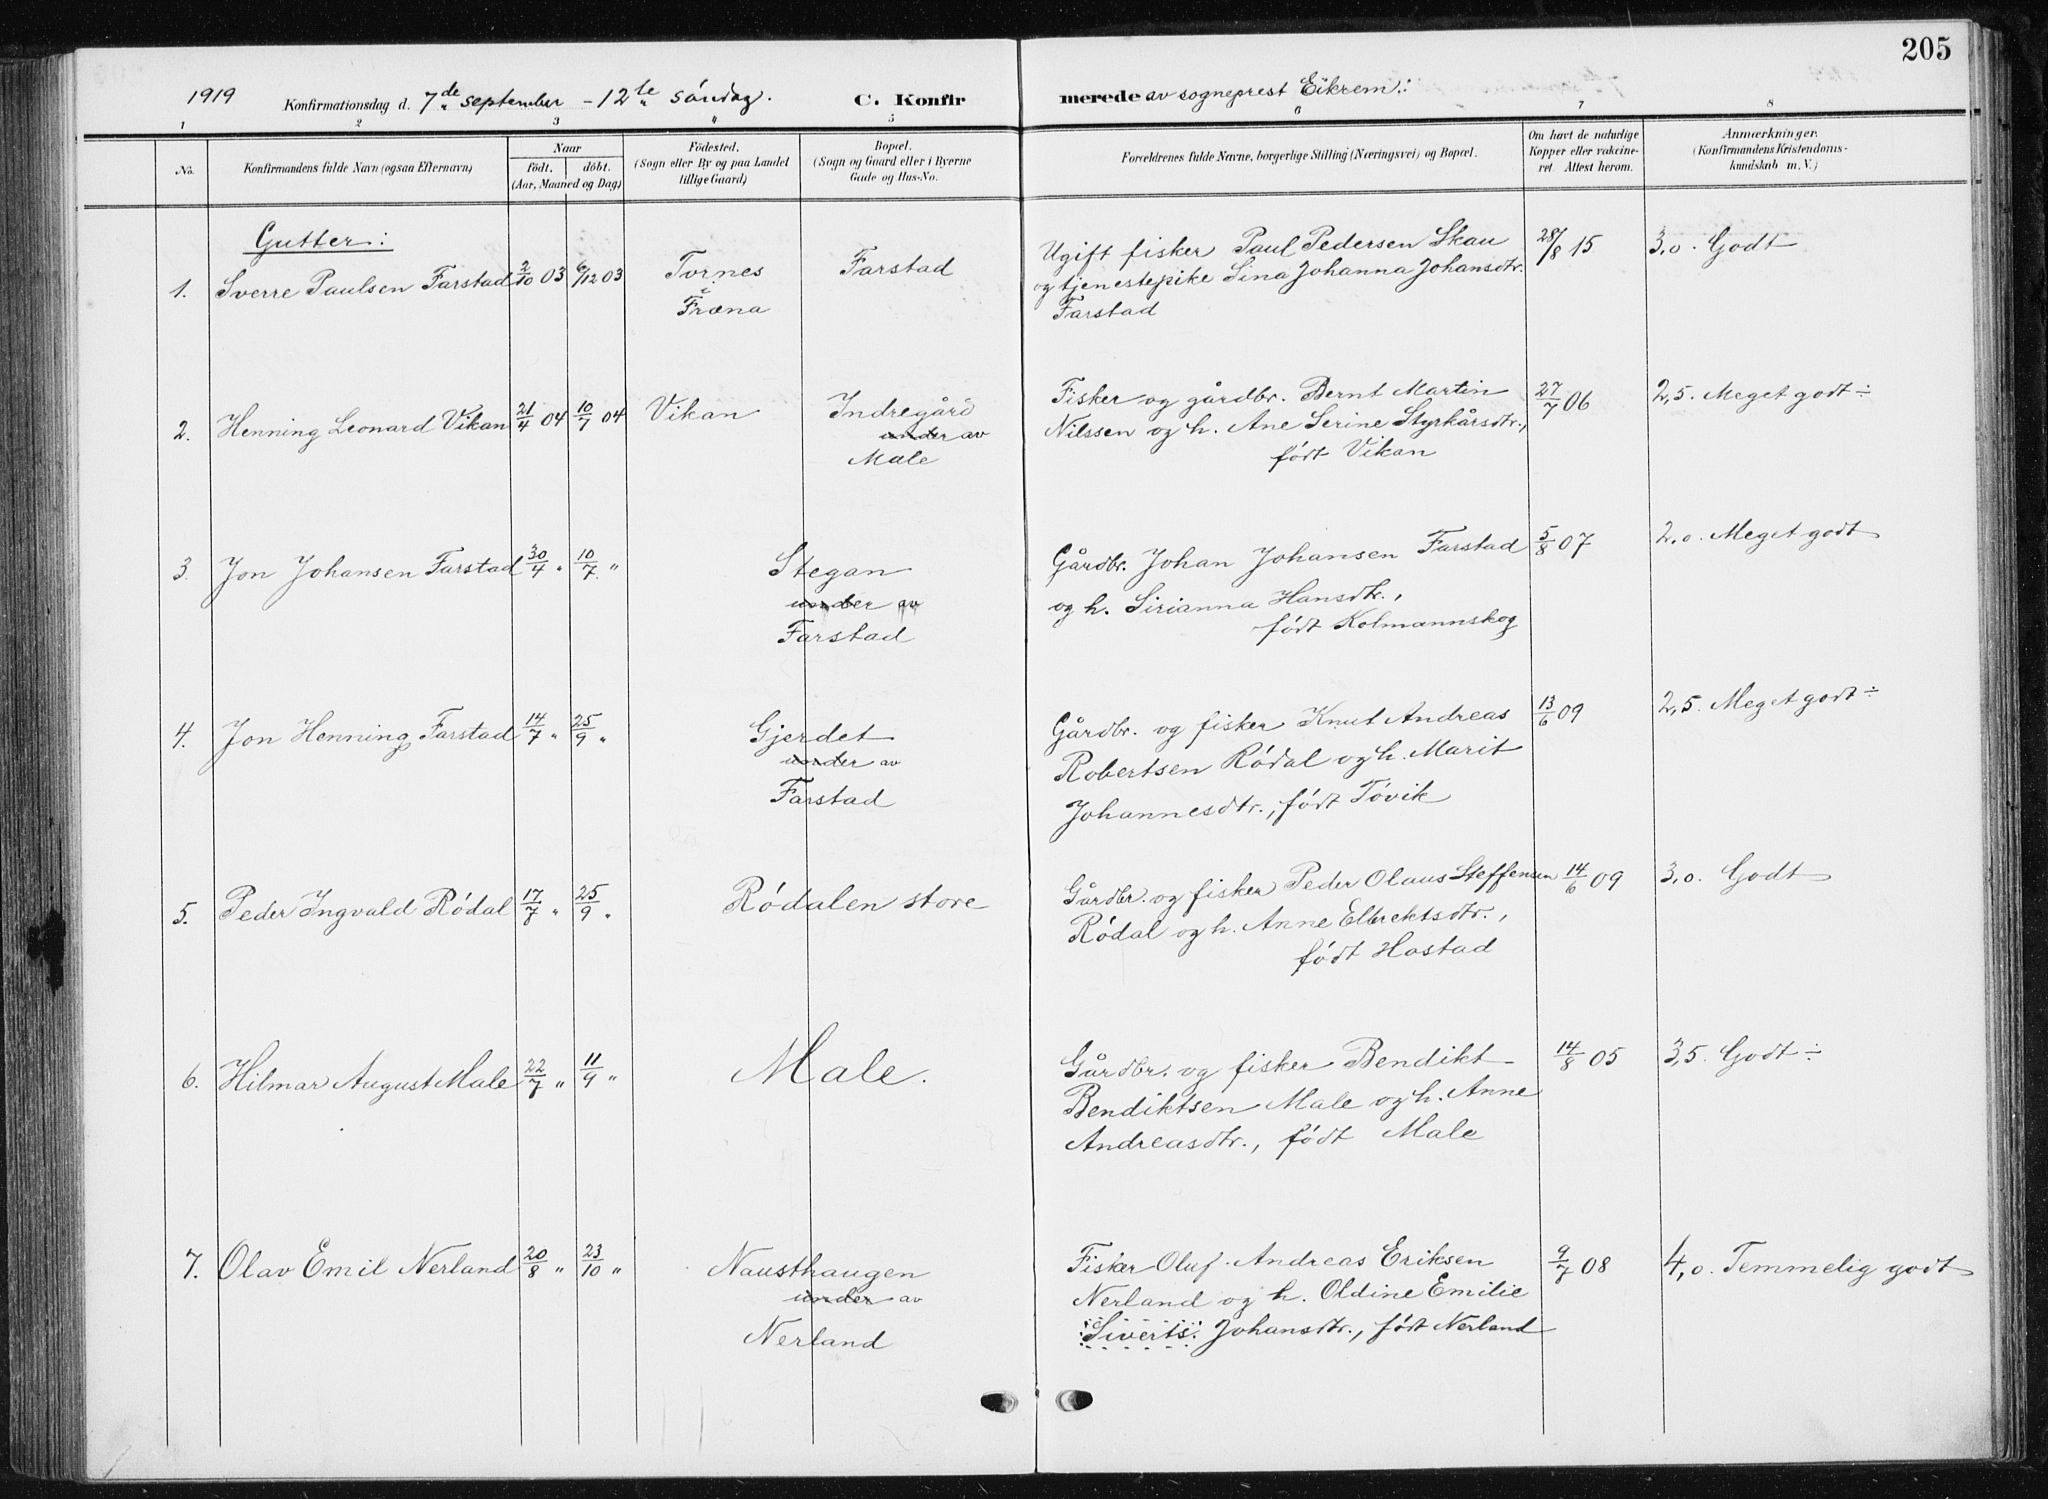 205
1919 Konfirmationsdag d. 7de september - 12te søndag. C. Konfirmerede av sogneprest Eikrem:
1 2 3 " 5 6 7 8
No. Konfirmandens fulde Navn (ogsaa Efternavn) Naar født. døbt. (Aar, Maaned og Dag) Fødested. (Sogn eller By og paa Landet tillige Gaard) Bopæl. (Sogn og Gaard eller i Byerne Gade og Hus-No. Forældrenes fulde Navne, borgerlige Stilling (Næringsvei) og Bopæl. Om havt de naturlige Kopper eller vakcineret. Attest herom. Anmærkninger. (Konfirmandens Kristendomskundskab m. V.)
Gutter:
1. Sverre Paulsen Farstad 2/10 03 6/12 03 Tornes i Fræna Farstad
Ugift fisker Paul Pedersen Skau 28/8 15 3,0. Godt
og tjenestepike Lina Johanna Johansdtr.
Farstad
2. Henning Leonard Vikan 21/4 04 10/7 04 Vikan Indregård under av Male
Fisker og gårdbr. Bernt Martin 27/7 06 2,5. Meget godt ÷
Nilssen og h. Ane Serine Styrkårsdtr.,
født Vikan
3. Jon Johansen Farstad 30/4 " 10/7 " Stegan under av Farstad
Gårdbr. Johan Johansen Farstad 5/8 07 2,0. Meget godt
og h. Sirianna Hansdtr.,
født Kolmannskog
4. Jon Henning Farstad 14/7 " 25/9 " Gjerdet under av Farstad
Gårdbr. og fisker Knut Andreas 13/6 09 2,5. Meget godt ÷
Robertsen Rødal og h. Marit
Johannesdtr., født Tøvik
5. Peder Ingvald Rødal 17/7 " 25/9 " Rødalen store
Gårdbr. og fisker Peder Olaus Steffensen 14/6 09 3,0. Godt
Rødal og h. Anne Elbrektsdtr.,
født Hostad
6. Hilmar August Male 22/7 " 11/9 " Male.
Gårdbr. og fisker Bendikt 14/8 05 3,5. Godt ÷
Bendiktsen Male og h. Anne
Andreasdtr., født Male
7. Olav Emil Nerland 20/8 " 23/10 " Nausthaugen under av Nerland
Fisker Oluf Andreas Eriksen 9/7 08 4,0. Temmelig godt
Nerland og h. Oldine Emilie
Siverts. Johansdtr., født Nerland